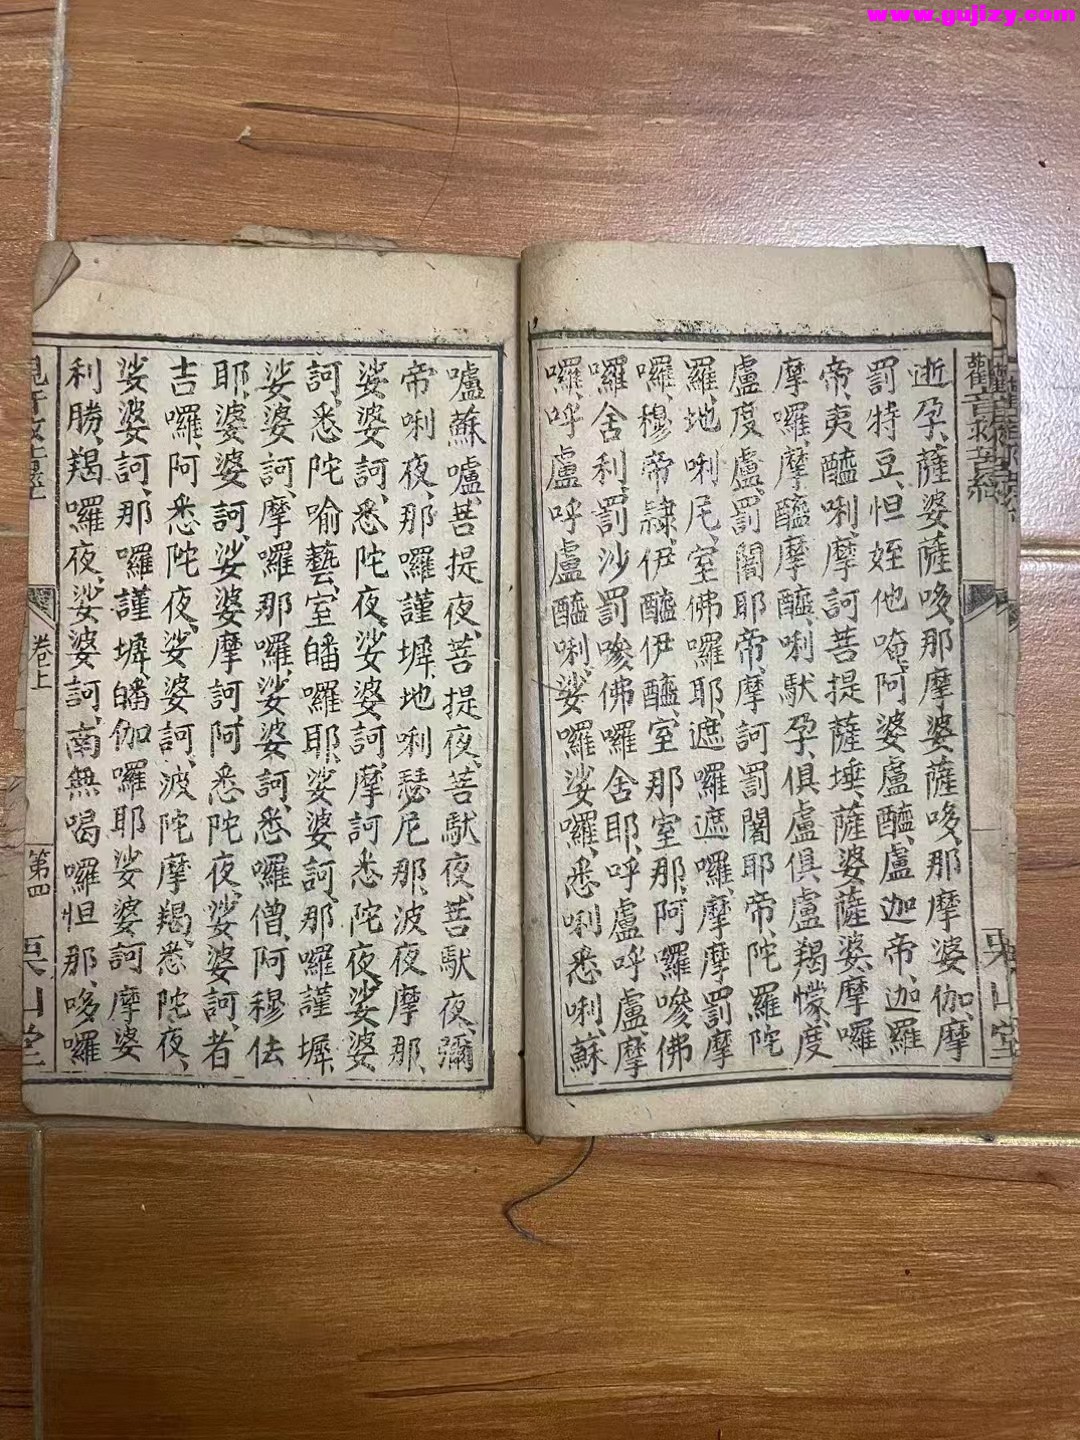 www.gujizy.com
觀音救苦經
栗山堂
逝孕、薩婆薩哆、那摩婆薩哆、那摩婆伽、摩
罰特豆、怛姪他、唵、阿婆盧醯、盧迦帝、迦羅
帝、夷醯唎、摩訶菩提薩埵、薩婆薩婆、摩羅
摩囉、摩醯摩醯、唎馱孕、俱盧俱盧羯懞、度
盧度盧、罰闍耶帝、摩訶罰闍耶帝、陀羅陀
羅、地唎尼、室佛囉耶、遮囉遮囉、摩摩罰摩
囉、穆帝隸、伊醯伊醯、室那室那、阿囉嘇佛
囉舍利、罰沙罰嘇、佛囉舍耶、呼盧呼盧摩
囉、呼盧呼盧醯唎、娑囉娑囉、悉唎悉唎、蘇
嚧蘇嚧、菩提夜、菩提夜、菩馱夜、菩馱夜、彌
帝唎夜、那囉謹墀、地唎瑟尼那、波夜摩那、
娑婆訶、悉陀夜、娑婆訶、摩訶悉陀夜、娑婆
訶、悉陀喻藝、室皤囉耶、娑婆訶、那囉謹墀、
娑婆訶、摩囉那囉、娑婆訶、悉囉僧、阿穆佉
耶、婆婆訶、娑婆摩訶、阿悉陀夜、娑婆訶、者
吉囉、阿悉陀夜、娑婆訶、波陀摩羯、悉陀夜、
娑婆訶、那囉謹墀、皤伽囉耶、娑婆訶、摩婆
利勝、羯囉夜、娑婆訶、南無喝囉怛那、哆囉
卷上
第四
栗山堂